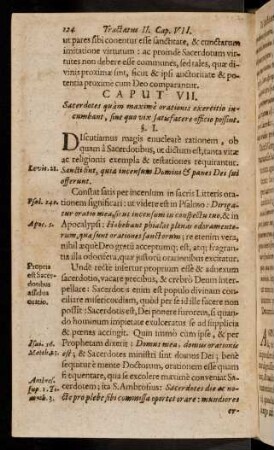 124 Tractatus II. Cap. VII.
ut pares sibi conentur esse sanctitate, & cunctarum
imitatione virtutum: ac proinde Sacerdotum vir-
tutes non debere esse communes, sed tales, quæ di-
vinis proximæ sint, sicut & ipsi auctoritate & po-
tentia proximè cum Deo comparantur.
CAPUT VII.
Sacerdotes quàm maximè orationis exercitio in-
cumbant, sine quo vix satisfacere officio possint.
§. I.
Discutiamus magis enucleatè rationem, ob
quam à Sacerdotibus, ut dictum est, tanta vitæ
ac religionis exempla & testationes requirantur.
Levit. 21. Sancti sint, quia incensum Domini & panes Dei sui
offerunt.
Constat satis per incensum in sacris Litteris ora-
Psal. 140. tionem significari: ut videre est in Psalmo: Dirigа-
tur oratio mea, sicut incensum in conspectu tuo, & in
Apoc. 5. Apocalypsi: Habebant phialas plenas odoramento-
rum, quæ sunt orationes sanctorum; re etenim vera,
nihil æquè Deo gratū acceptumq; est, atq; fragrantia
illa odorifera, quæ justorū orationibus excitatur.
Propria
est Sacer-
dotibus
assidua
oratio.
Unde rectè infertur proprium esse & adnexum
sacerdotio, vacare precibus, & crebrò Deum inter-
pellare: Sacerdotis enim est populo divinam con-
ciliare misericordiam, quod per se id ille facere non
possit. Sacerdotis est, Dei ponere furorem, si quan-
do hominum improbitate exulceratur se ad supplicia
& pœnas accingit. Quin immò cum ipse, & per
Psal. 56. Prophetam dixerit: Domus mea, domus orationis
Matth. 21. est; & Sacerdotes ministri sint domus Dei; bene
sequatur è mente Doctorum, orationem esse quam
si frequentare, qua se excolere maximè conveniat Sa-
Ambros. cerdotem; ita S. Ambrosius: Sacerdotes die ac no-
sup. 1. Ti- cte pro plebe sibi commissa oportet orare: mundiores
moth. 3.
er-